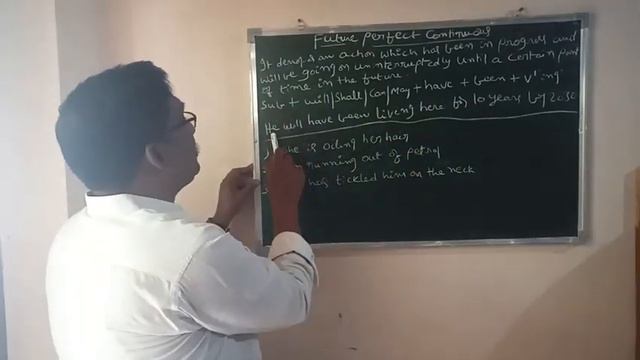 Future Perfect Continuous
It denotes an action which has been in progress and
will be going on un interruptedly until a certain point
of time in the future.
Sub + will/Shall/Can/May + have + been + V' ing
He will have been living here for 10 years by 2030
she is oiling her hair
running out of petrol
has tickled him on the neck